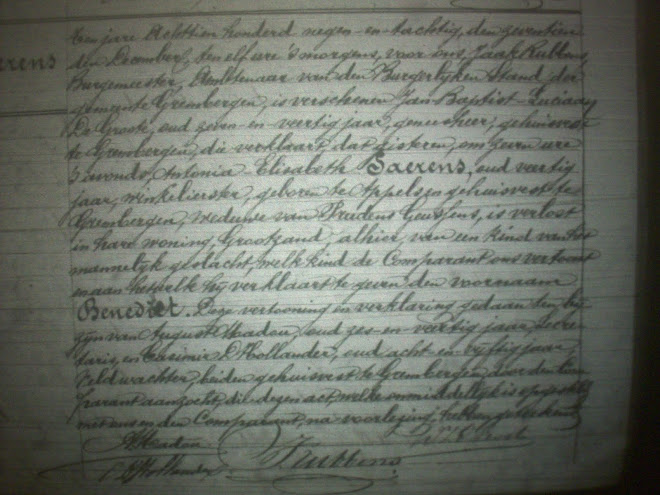 erens
Ten jare Achttien honderd negen-en-tachtig, den zeventien
den December, ten elf ure 's morgens, voor ons, Jaak Rubbens,
Burgemeester, Ambtenaar van den Burgerlyken Stand der
gemeente Grembergen, is verschenen Jan Baptist Luciaan
De Groote, oud zeven-en-veertig jaar, geneesheer, gehuisvest
te Grembergen, die verklaart dat gisteren, om zeven ure
's avonds, Antonia Elisabeth Saerens, oud veertig
jaar, winkelierster, geboren te Appels en gehuisvest te
Grembergen, weduwe van Prudens, is verlost
in hare woning, Grootzand, alhier, van een kind van het
mannelyk geslacht, welk kind de Comparant ons vertoont
en aan hetwelk hy verklaart te geven den voornaam
Benedict. Deze vertooning en verklaring gedaan ten by
zyn van August Hadou, oud zes-en-veertig jaar, Secre
taris, en Casimir D'Hollander, oud acht-en-vyftig jaar,
Veldwachter, beiden gehuisvest te Grembergen, door den Com
parant aangezocht, die dezen act, welke onmiddelyk is opgesteld
met ons en den Comparant, na voorlezing, hebben geteekend
C D'Hollander Rubbens